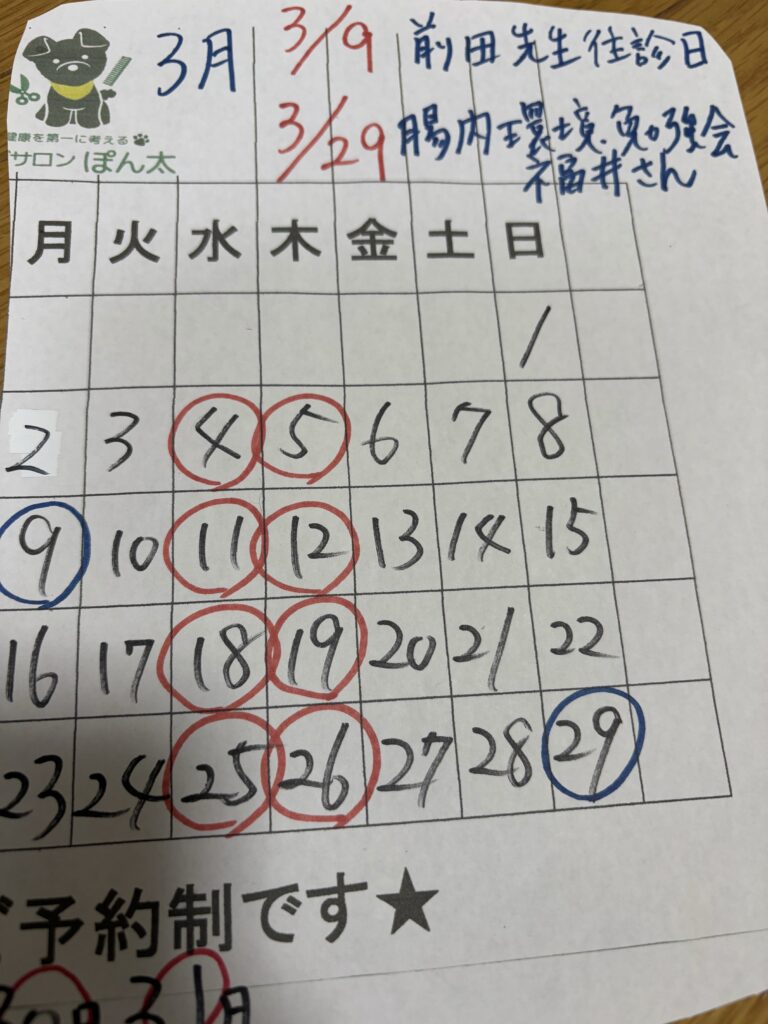 3月
3/9 前田先生往診日
3/29 腸内環境勉強会
福井さん
健康を第一に考える
サロン ぽん太
月 火 水 木 金 土 日
1
2 3 4 5 6 7 8
9 10 11 12 13 14 15
16 17 18 19 20 21 22
23 24 25 26 27 28 29
予約制です★